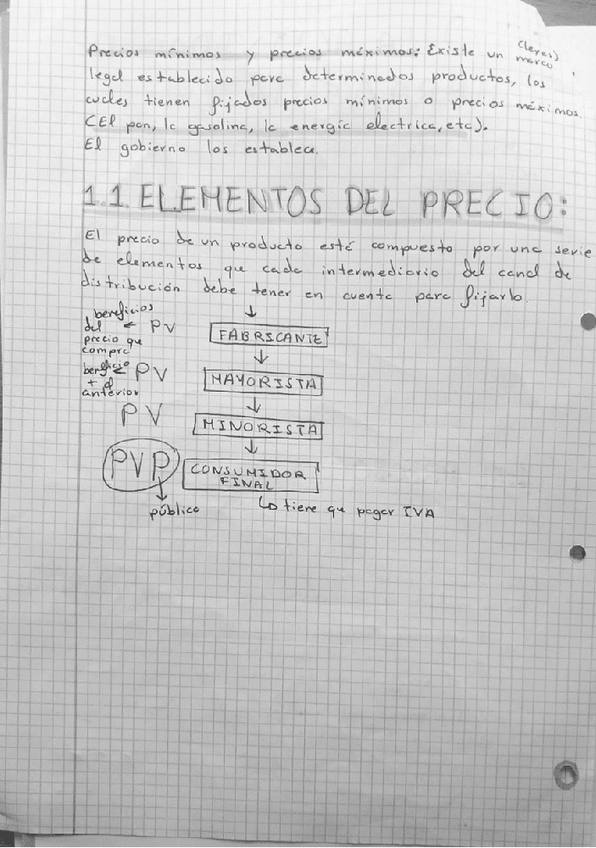 Precios mínimos y precios máximos: Existe un marco (leyes)
legal establecido para determinados productos, los
cuales tienen fijados precios mínimos o precios máximos.
(El pan, la gasolina, la energía electrica, etc).
El gobierno los establece.
1.1. ELEMENTOS DEL PRECIO:
El precio de un producto está compuesto por una serie
de elementos que cada intermediario del canal de
distribución debe tener en cuenta para fijarlo.
beneficios
del ← PV
precio que
compra
FABRICANTE
beneficio ← PV
+ el
anterior
MAYORISTA
PV
MINORISTA
PVP
CONSUMIDOR
FINAL
público
↳ tiene que pagar IVA